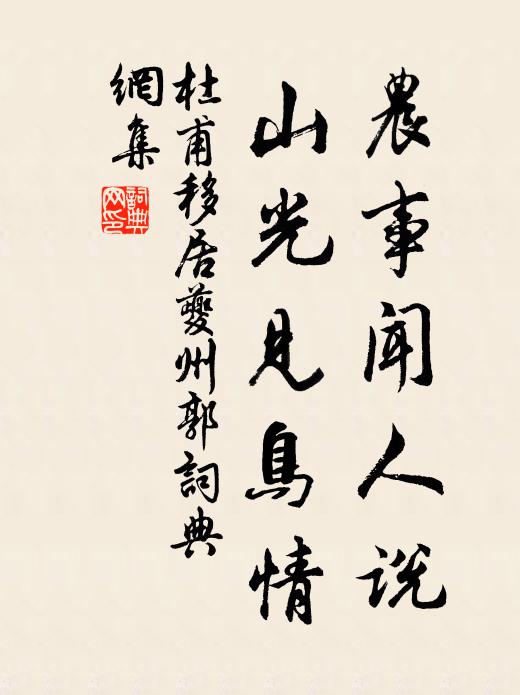 農事聞人說
山光見鳥情
杜甫移居夔州郭詞典
網集
詞典
网印